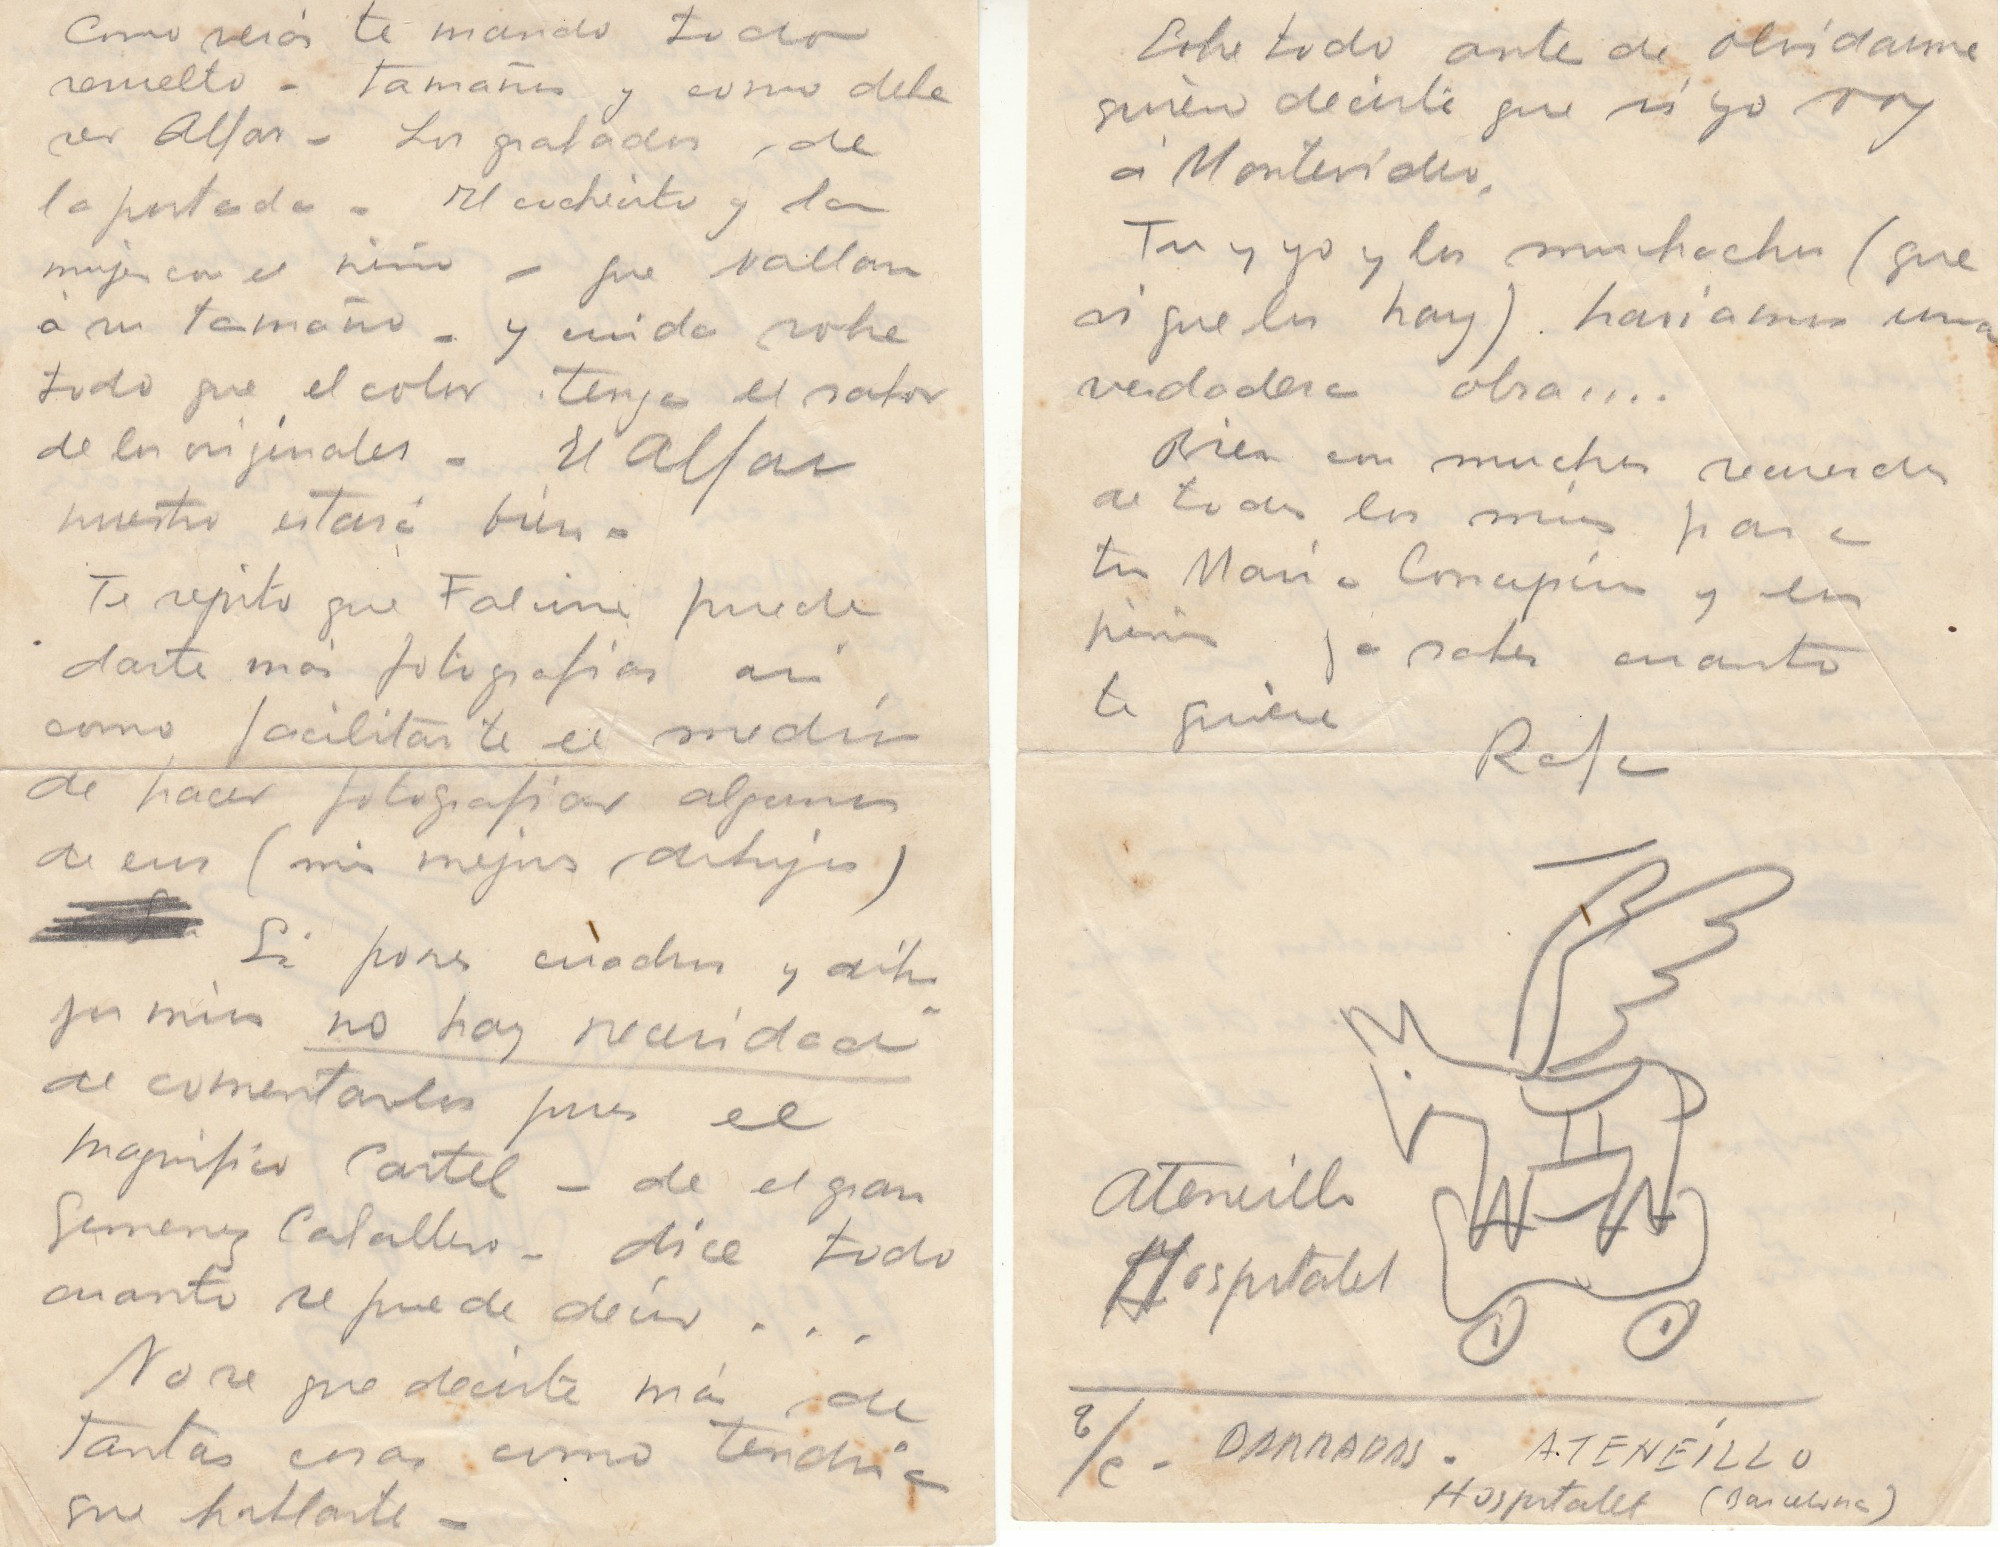 Como verás te mando todo
resuelto - tamaños y como debe
ser Alfar - Los grabados, de
la portada - El cochecito y la
mujer con el niño - que vallan
á su tamaño - y cuida sobre
todo que el color tenga el sabor
de los originales - El Alfar
nuestro estará bien -
Te repito que Falcini puede
darte más fotografias asi
como facilitarte el medio
de hacer fotografiar algunos
de eius (mis mejores dibujos)
Si pones cuadros y dibu
jos mios no hay necesidad
de comentarlos pues el
magnifico Cartel - de el gran
Gimenez Caballero - dice todo
cuanto se puede decir ...
No se que decirte más de
tantas cosas como tendria
que hablarte -
Sobre todo ante de olvidarme
quiero decirte que si yo voy
á Montevideo,
Tu y yo y los muchachos (que
si que los hay) hariamos una
verdadera obra.....
Bien con muchos recuerdos
de todos los mios para
tu Maria Concepción y los
niños ya sabes cuanto
te quiere
Rafa
Ateneillo
Hospitalet
/c - BARRADAS - ATENEÍLLO
Hospitalet (Barcelona)